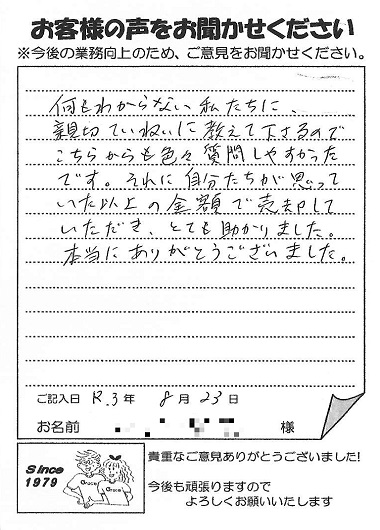 お客様の声をお聞かせください
※今後の業務向上のため、ご意見をお聞かせください。
何もわからない私たちに、
親切ていねいに教えて下さるので
こちらからも色々質問しやすかった
です。それに自分たちが思って
いた以上の金額で売却して
いただき、とても助かりました。
本当にありがとうございました。
ご記入日 R.3年 8月23日
お名前 様
貴重なご意見ありがとうございました!
Since
1979
Grace
Grace
今後も頑張りますので
よろしくお願いいたします